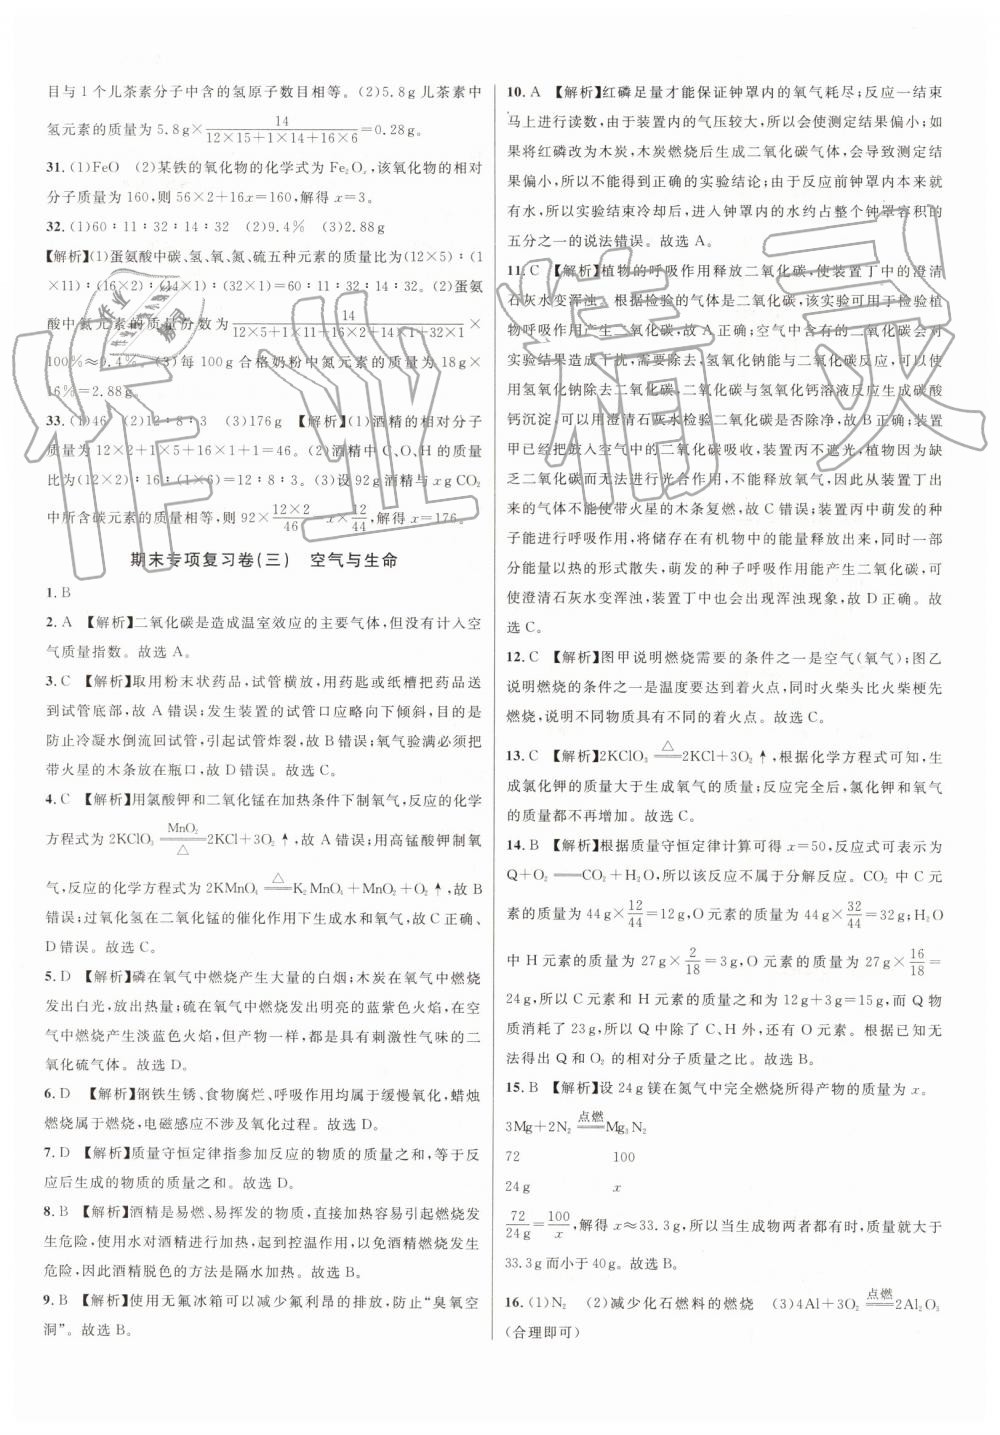 目与1个儿茶素分子中含的氢原子数目相等。(2)5.8g儿茶素中
氢元素的质量为 5.8g×14/(12×15+1×14+16×6)=0.28g。
31. (1)FeO (2)某铁的氧化物的化学式为Fe₂Oₓ,该氧化物的相对
分子质量为160,则56×2+16x=160,解得 x=3。
32. (1)60∶11∶32∶14∶32 (2)9.4% (3)2.88g
【解析】(1)蛋氨酸中碳、氢、氧、氮、硫五种元素的质量比为(12×5)∶(1
×11)∶(16×2)∶(14×1)∶(32×1)=60∶11∶32∶14∶32。(2)蛋氨
酸中氮元素的质量分数为 14/(12×5+1×11+16×2+14+32×1)×
100%≈9.4%。(3)每100g合格奶粉中氮元素的质量为18g×
16%=2.88g。
33. (1)46 (2)12∶8∶3 (3)176g 【解析】(1)酒精的相对分子
质量为12×2+1×5+16×1+1=46。(2)酒精中C、O、H的质量
比为(12×2)∶16∶(1×6)=12∶8∶3。(3)设92g酒精与xgCO₂
中所含碳元素的质量相等,则92×12×2/46 x×12/44,解得 x=176。
期末专项复习卷(三) 空气与生命
1. B
2. A 【解析】二氧化碳是造成温室效应的主要气体,但没有计入空
气质量指数。故选A。
3. C 【解析】取用粉末状药品,试管横放,用药匙或纸槽把药品送
到试管底部,故A错误;发生装置的试管口应略向下倾斜,目的是
防止冷凝水倒流回试管,引起试管炸裂,故B错误;氧气验满必须把
带火星的木条放在瓶口,故D错误。故选C。
4. C 【解析】用氯酸钾和二氧化锰在加热条件下制氧气,反应的化学
方程式为 2KClO₃ =MnO₂/△= 2KCl+3O₂↑,故A错误;用高锰酸钾制氧
气,反应的化学方程式为 2KMnO₄ =△= K₂MnO₄+MnO₂+O₂↑,故B
错误;过氧化氢在二氧化锰的催化作用下生成水和氧气,故C正确、
D错误。故选C。
5. D 【解析】磷在氧气中燃烧产生大量的白烟;木炭在氧气中燃烧
发出白光,放出热量;硫在氧气中燃烧发出明亮的蓝紫色火焰,在空
气中燃烧产生淡蓝色火焰,但产物一样,都是具有刺激性气味的二
氧化硫气体。故选D。
6. D 【解析】钢铁生锈、食物腐烂、呼吸作用均属于缓慢氧化,蜡烛
燃烧属于燃烧,电磁感应不涉及氧化过程。故选D。
7. D 【解析】质量守恒定律指参加反应的物质的质量之和,等于反
应后生成的物质的质量之和。故选D。
8. B 【解析】酒精是易燃、易挥发的物质,直接加热容易引起燃烧发
生危险,使用水对酒精进行加热,易控温控热,以免酒精燃烧发生
危险,因此酒精脱色的方法是隔水加热。故选B。
9. B 【解析】使用无氟冰箱可以减少氟利昂的排放,防止“臭氧空
洞”。故选B。
10. A 【解析】红磷足量才能保证钟罩内的氧气耗尽;反应一结束
马上进行读数,由于装置内的气压较大,所以会使测定结果偏小;如
果将红磷改为木炭,木炭燃烧后生成二氧化碳气体,会导致实验结果
偏小,所以不能得到正确的实验结论;由于反应前钟罩内本来就
有水,所以实验结束冷却后,进入钟罩内的水约占整个钟罩容积的
五分之一的说法错误。故选A。
11. C 【解析】植物的呼吸作用释放二氧化碳,使装置丁中的澄清
石灰水变浑浊。根据检验的气体是二氧化碳,该装置用于检验植
物呼吸作用产生二氧化碳,故A正确;空气中含有的二氧化碳会对
实验结果造成干扰,需要除去,氢氧化钠能与二氧化碳反应,可以使
用氢氧化钠除去二氧化碳,二氧化碳与氢氧化钙溶液反应生成碳酸
钙沉淀,可以用澄清石灰水检验二氧化碳是否除净,故B正确;装置
甲已经把鼓入空气中的二氧化碳吸收,装置丙不遮光,植物因为缺
乏二氧化碳而无法进行光合作用,不能释放氧气,因此从装置丁出
来的气体不能使带火星的木条复燃,故C错误;装置丙中萌发的种
子产生呼吸作用,将储存在有机物中的能量释放出来,释放出来的部
分能量以热的形式散失,萌发的种子呼吸作用能产生二氧化碳,会
使澄清石灰水变浑浊,装置丁中也会出现浑浊现象,故D正确。故
选C。
12. C 【解析】图甲说明燃烧需要的条件之一是空气(氧气);图乙
说明燃烧的条件之一是温度要达到着火点,同时火柴头比火柴梗先
燃烧,说明不同物质具有不同的着火点。故选C。
13. C 【解析】2KClO₃ =△= 2KCl+3O₂↑,根据化学方程式可知,生
成氯化钾的质量大于生成氧气的质量;反应完全后,氯化钾和氧气
的质量都不再增加。故选C。
14. B 【解析】根据质量守恒定律计算可得 x=50,反应式可表示为
Q+O₂══CO₂+H₂O,所以该反应不属于分解反应。CO₂ 中C元
素的质量为 44g×12/44=12g,O元素的质量为 44g×32/44=32g;H₂O
中H元素的质量为 27g×2/18=3g,O元素的质量为 27g×16/18=
24g,所以C元素和H元素的质量之和为12g+3g=15g,而Q物
质消耗了23g,所以Q中除了C、H外,还有O元素。根据已知无
法得出Q和O₂的相对分子质量之比。故选B。
15. B 【解析】设24g镁在氮气中完全燃烧所得产物的质量为x。
3Mg+2N₂ =点燃= Mg₃N₂
72 100
24g x
72/24g=100/x,解得 x≈33.3g,所以当生成物两者都有时,质量就大于
33.3g而小于40g。故选B。
16. (1)N₂ (2)减少化石燃料的燃烧 (3)4Al+3O₂ =点燃= 2Al₂O₃
(合理即可)
作业精灵